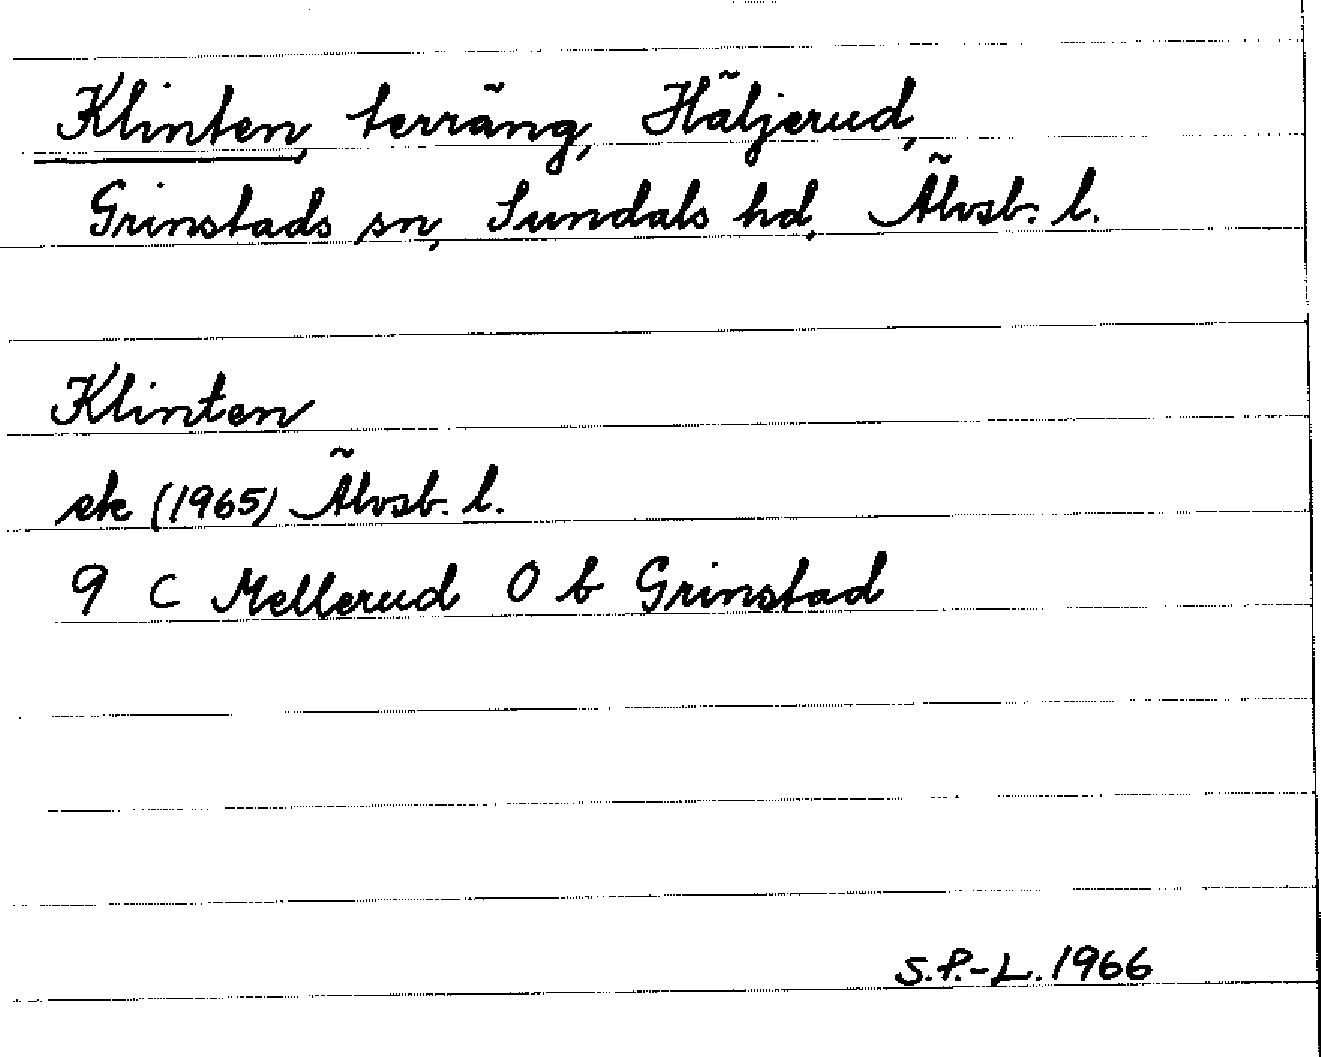 Klinten, terräng, Häljerud,
Grinstads sn, Sundals hd, Älvsb. l.
Klinten
ek (1965) Älvsb. l.
9 C Mellerud O b Grinstad
S.P.-L. 1966